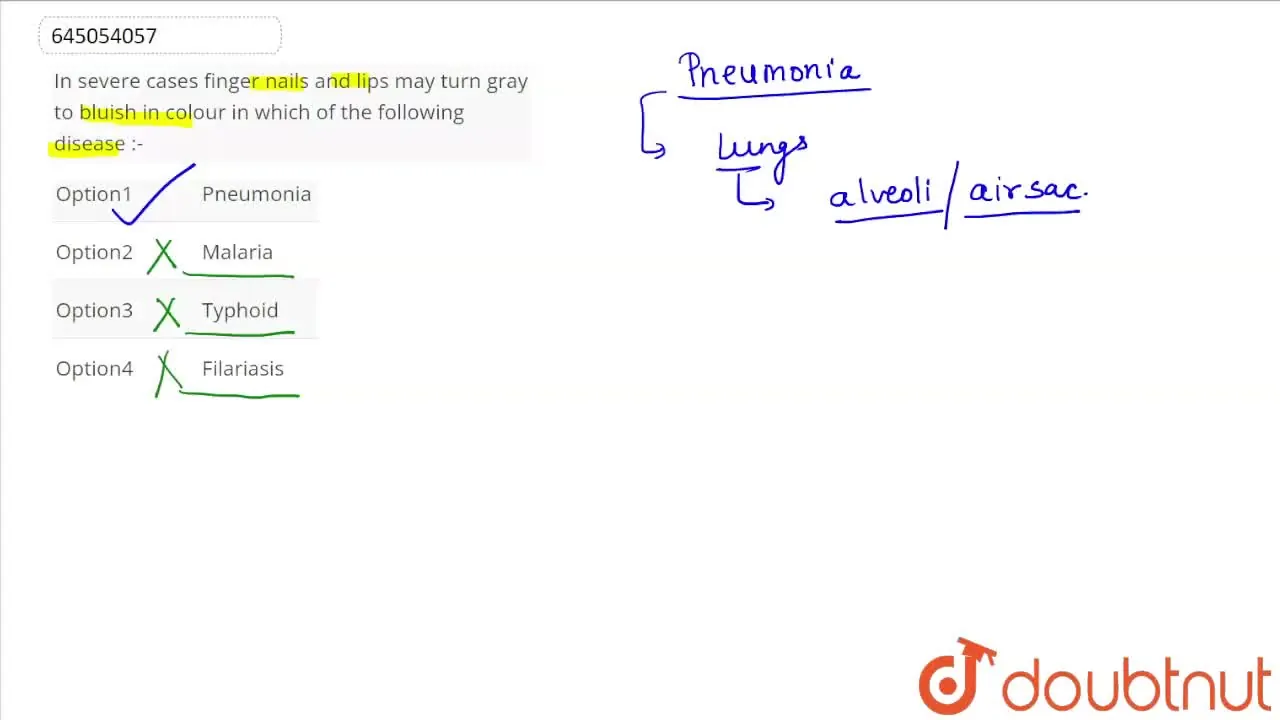 645054057
In severe cases finger nails and lips may turn gray
to bluish in colour in which of the following
disease :-
Option1 Pneumonia
Option2 Malaria
Option3 Typhoid
Option4 Filariasis
Pneumonia
Lungs
alveoli / airsac.
doubtnut